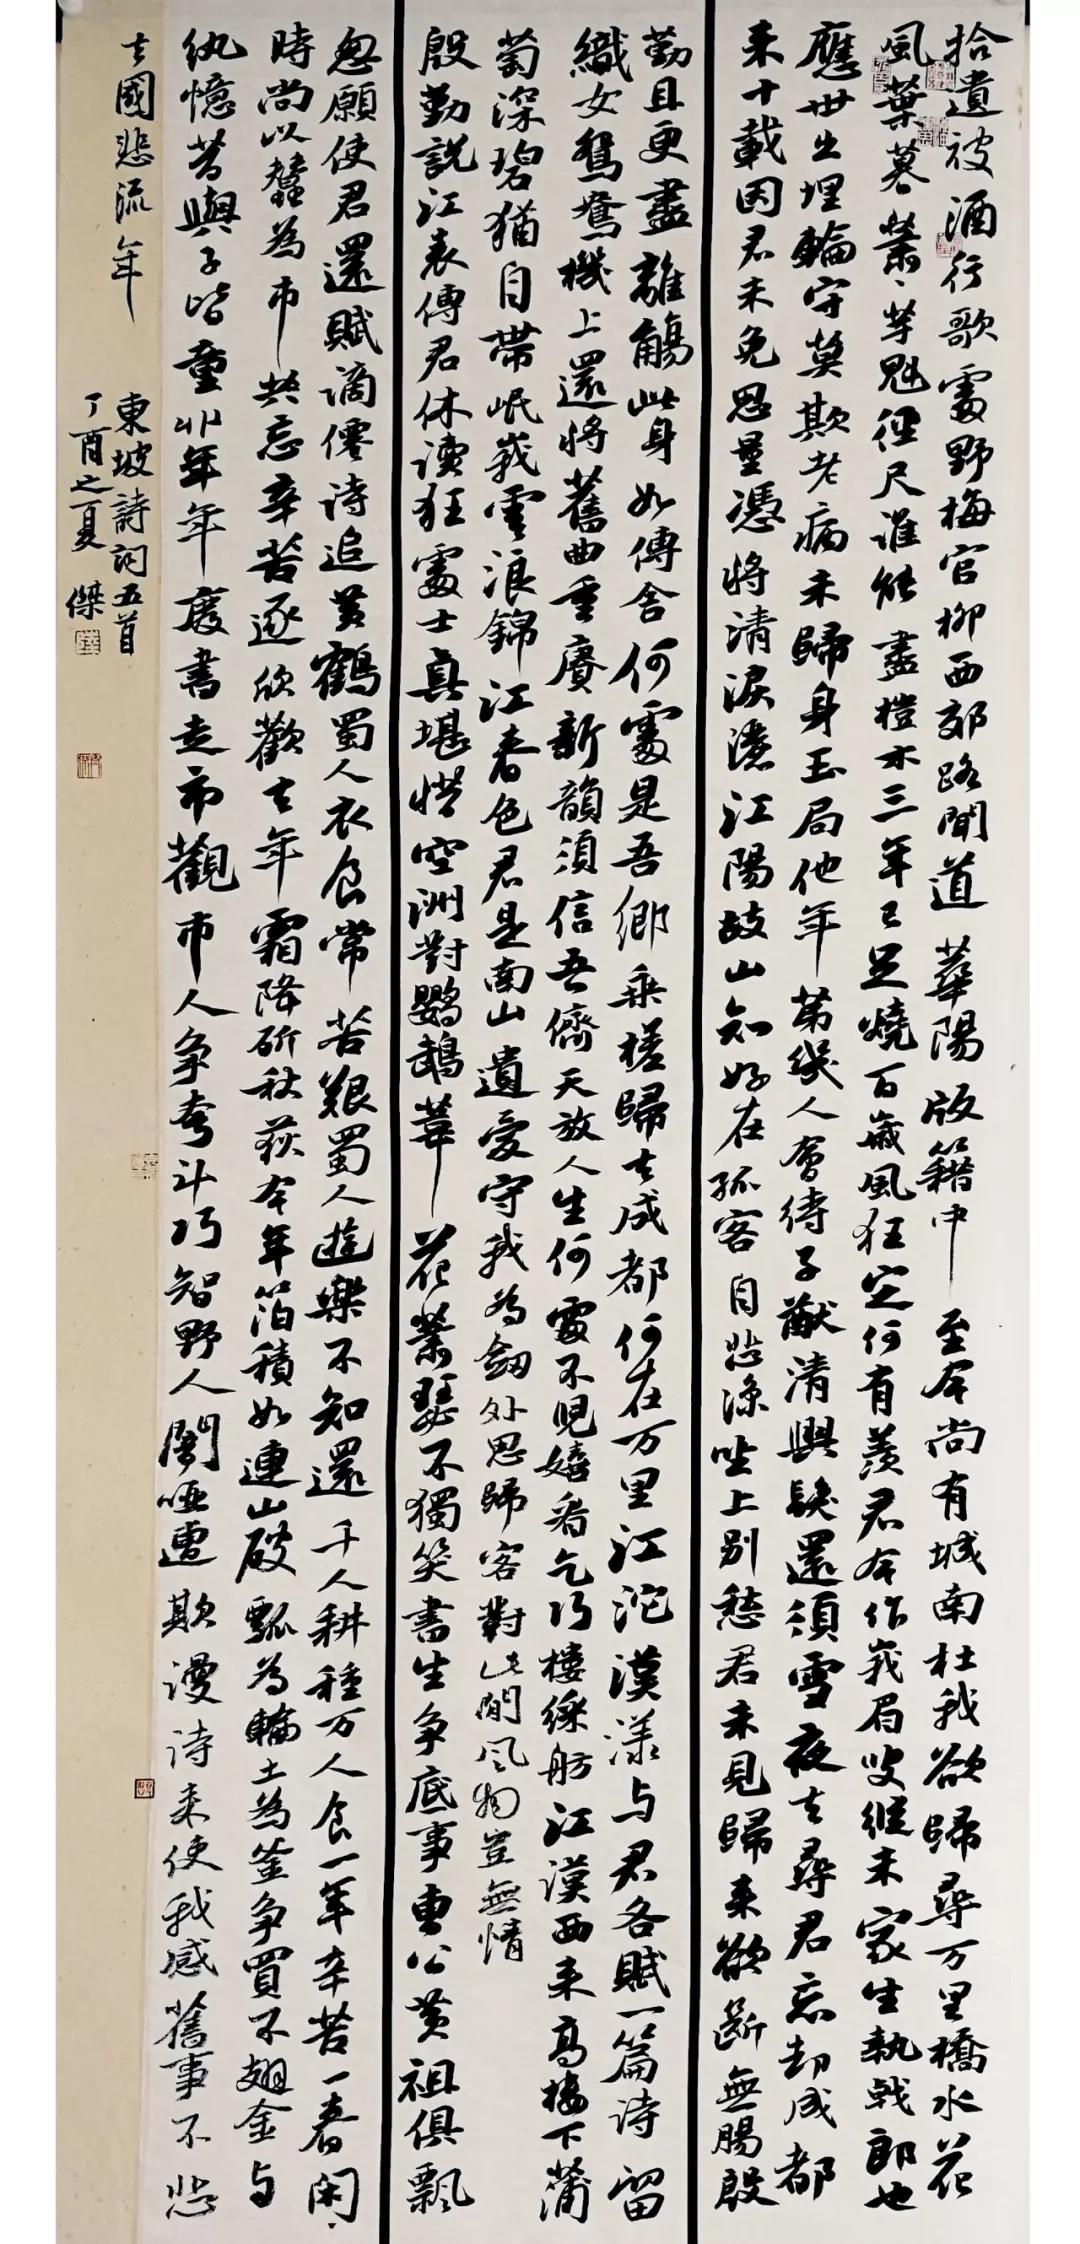 拾遺被酒行歌處野梅官柳西郊路聞道華陽版籍中至今尚有城南杜我欲歸尋万里橋水花
風葉暮蕭々芋魁徑尺誰能盡榿木三年已足燒百歲風狂定何有羨君今作峩眉叟縱未家生執戟郎也
應世出埋輪守莫欺老病未歸身玉局他年第幾人會待子猷清興發還須雪夜去尋君忘却成都
來十載因君未免思量憑將清淚灑江陽故山知好在孤客自悲涼坐上别愁君未見歸來欲斷無腸殷
勤且更盡離觴此身如傳舍何處是吾鄉乘槎歸去成都何在万里江沱漢漾与君各賦一篇詩留
織女鴛鴦機上還將舊曲重賡新韻須信吾儕天放人生何處不兒嬉看乞巧樓綵舫江漢西來高樓下蒲
萄深碧猶自帶岷峩雪浪錦江春色君是南山遺愛守我為劍外思歸客對此間風物豈無情
殷勤說江表傳君休讀狂處士真堪惜空洲對鸚鵡葦花蕭瑟不獨笑書生争底事曹公黃祖俱飄
忽願使君還賦謫僊詩追黃鶴蜀人衣食常苦艱蜀人遊樂不知還千人耕種万人食一年辛苦一春閑
時尚以蠶為市共忘辛苦逐欣歡去年霜降斫秋荻今年箔積如連山破瓢為輪土為釜争買不翅金与
紈憶昔與子皆童丱年年廢書走市觀市人争夸斗巧智野人闇啞遭欺謾詩來使我感舊事不悲
去國悲流年
東坡詩詞五首
丁酉之夏 傑